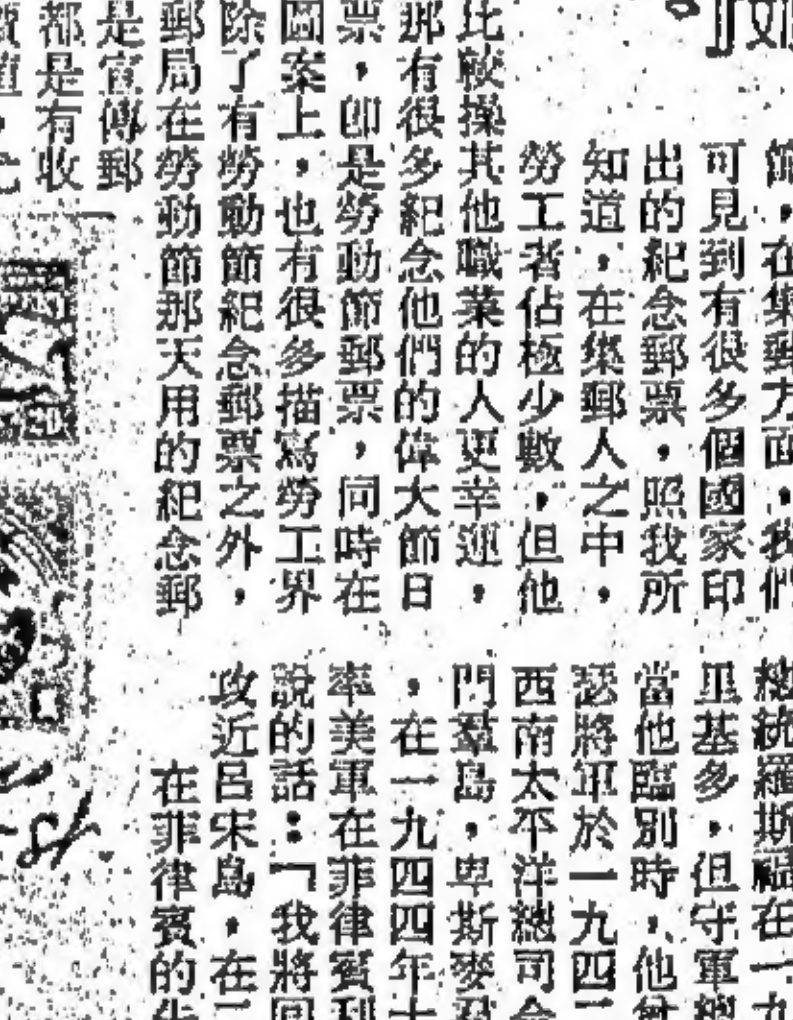 節，在集郵方面，我們
可見到有很多個國家印
出的紀念郵票，照我所
知道，在集郵人之中，
勞工者佔極少數，但他
比較操其他職業的人更幸運，
那有很多紀念他們的偉大節日
票，卽是勞動節郵票，同時在
圖案上，也有很多描寫勞工界
除了有勞動節紀念郵票之外，
郵局在勞動節那天用的紀念郵
是宣傳郵
都是有收
總統羅斯福在一九
里基多，但守軍
當他臨別時，他曾
瑟將軍於一九四二
西南太平洋總司令
門羣島，卑斯麥羣
，在一九四四年十
率美軍在菲律賓
說的話：「我將回
攻近呂宋島，在
在菲律賓的